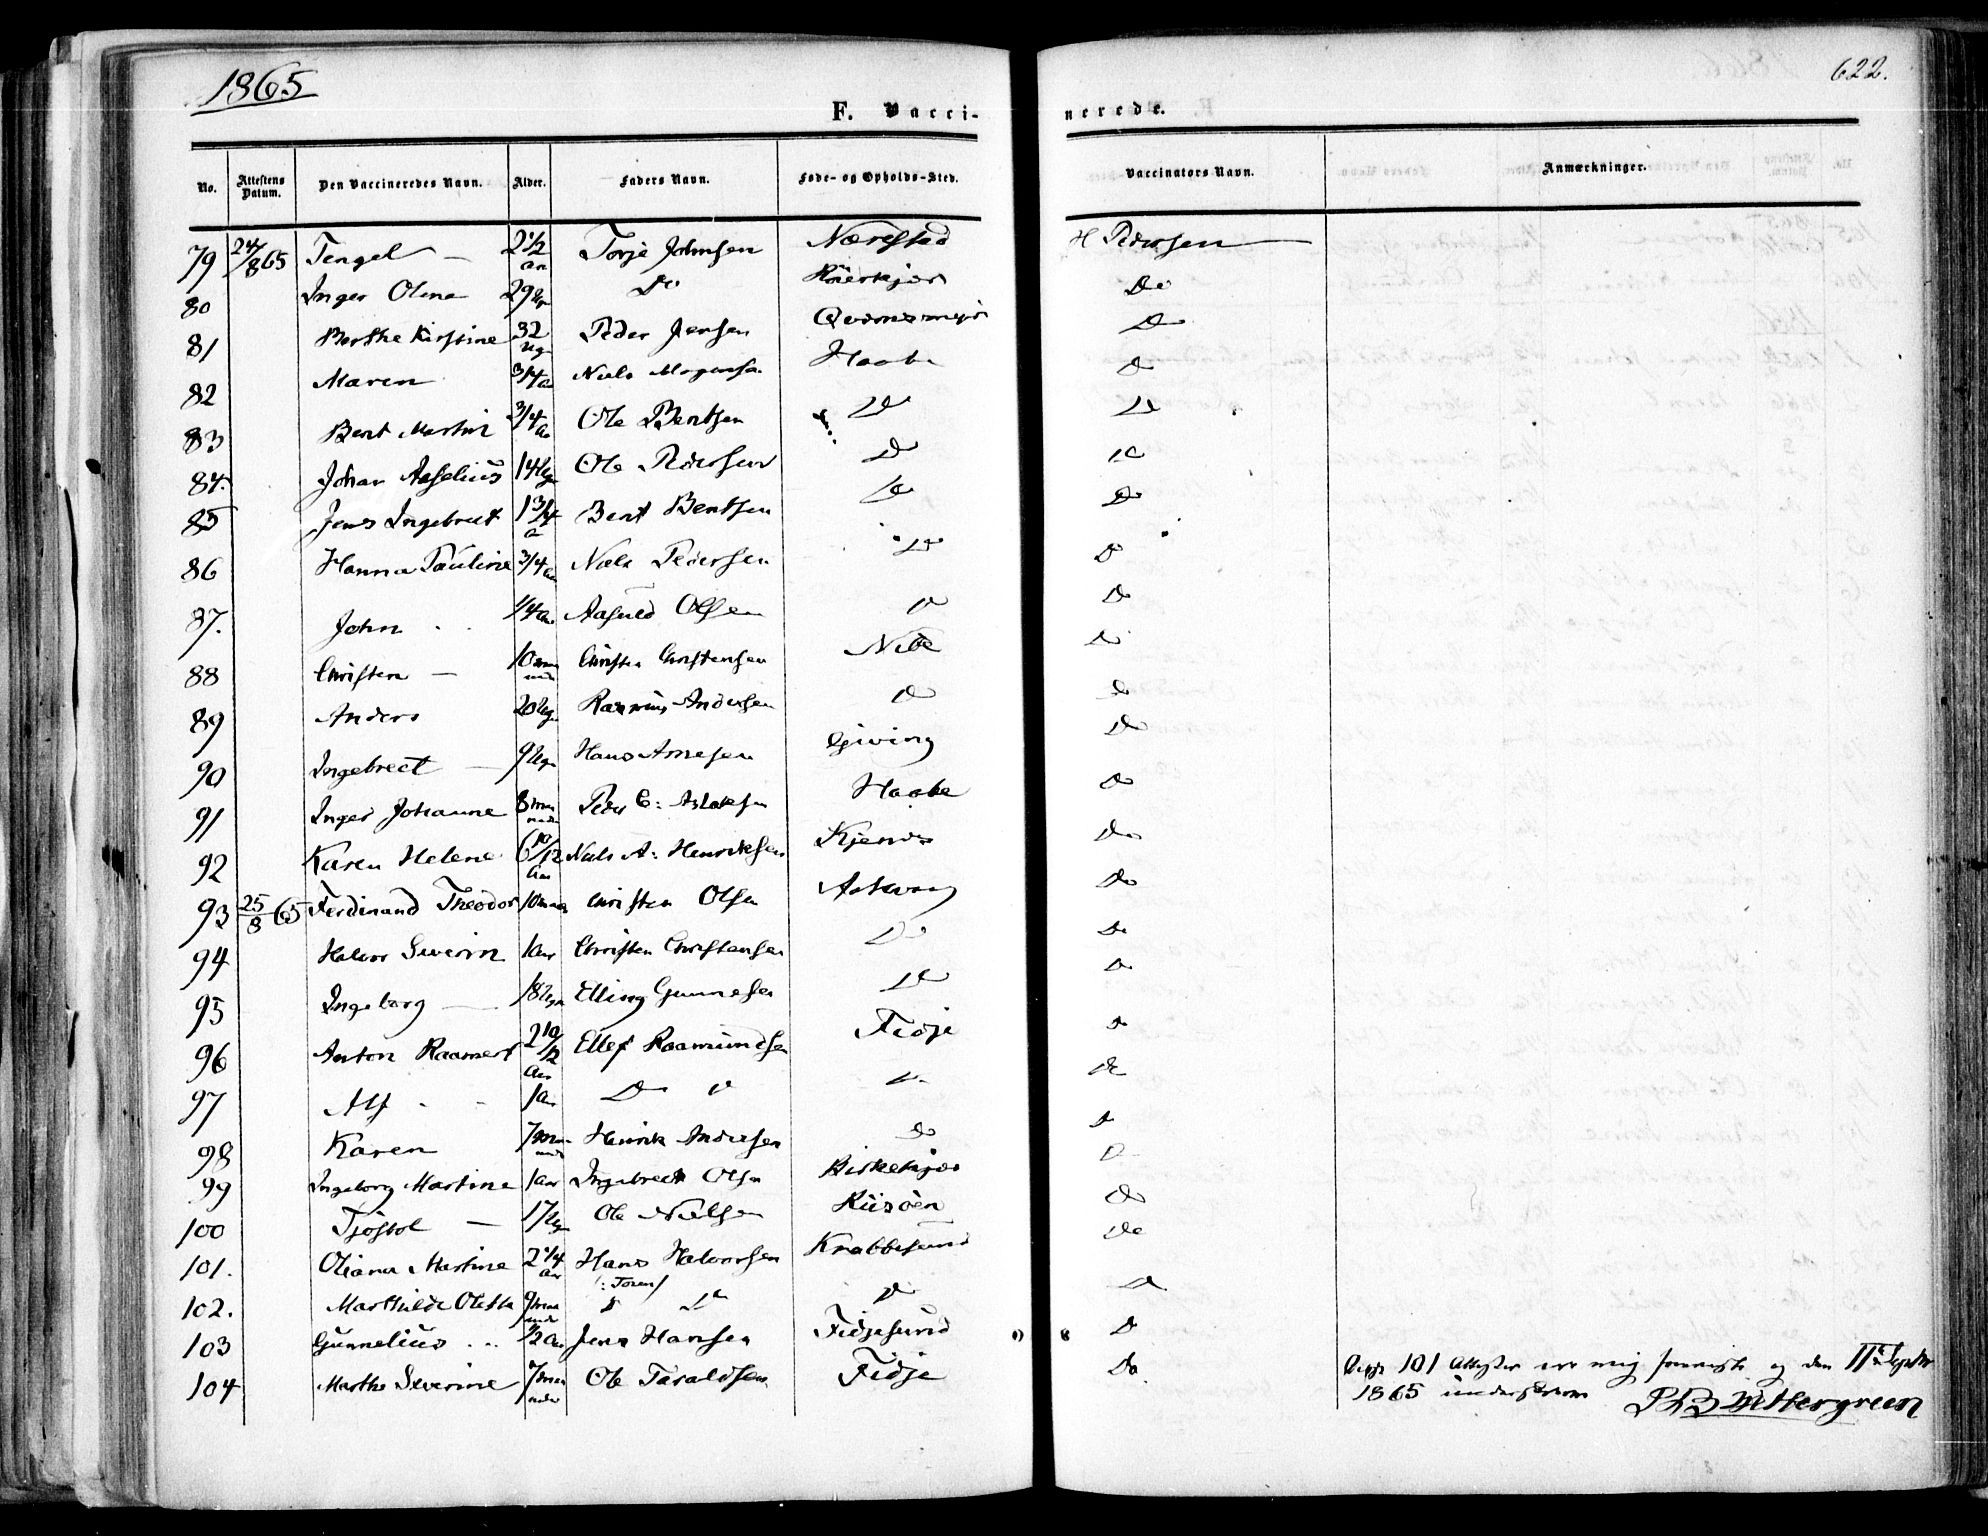 1865
622.
F. Vacci-
nerede.
No. Attestens Datum. Den Vaccineredes Navn. Alder. Faders Navn. Føde- og Opholds-Sted. Vaccinators Navn. Anmærkninger.
79 24/8 65 Tengel — 2 1/2 aar Torje Johnsen Nærestad H Pedersen
80 Inger Oline 29 Ugr Do Do
81 Berthe Kirstine 32 Ugr Peder Jensen Do
82 Maren 3/4 a Niels Mogensen Haabe Do
83 Bent Martin 3/4 a Ole Bentsen Do Do
84. Johan Aagelius 14 Ugr Ole Pedersen Do Do
85 Jens Ingebret 1 3/4 a Bent Bentsen Do Do
86 Hanna Pauline 3/4 aar Niels Pedersen Do Do
87. John 1/4 aar Aasuld Olsen Do Do
88 Christen — 10 maaneder Christen Christensen Nibe Do
89 Anders 20 Ugr Rasmus Andersen Do Do
90 Ingebrect — 9 Ugr Hans Arnesen Giving Do
91 Inger Johanne 8 maaneder Peder C: Aslaksen Haabe Do
92 Karen Helene 6 10/12 Aar Niels A: Henriksen Kjenes Do
93 25/8 65 Ferdinand Theodor 10 maan Christen Olsen Askvaag Do
94 Halvor Severin 1 aar Christen Christensen Do Do
95 Ingeborg — 18 Ugr Elling Gunnesen Do Do
96 Anton Raamert 2 10/12 Aar Ellef Raamundsen Fidje Do
97 Alf 1 aar Do Do Do Do
98 Karen 7 maaneder Henrik Andersen Do Do
99 Ingeborg Martine 1 aar Ingebreth Olsen Birkekjær Do
100 Tjøstol — 17 Ugr Ole Nielsen Riisøen Do
101. Oliana Martine 2 1/4 aar Hans Halvorsen Krabbesund Do
102. Marthilde Olette 9 maaneder /: Toren/ Do Do Do Do
103 Gunnelius 1/2 aar Jens Hansen Fidjesund Do
104 Marthe Severine 7 maaneder Ole Taraldsen Fidje Do
101 Attester ere mig foreviste og den
1865